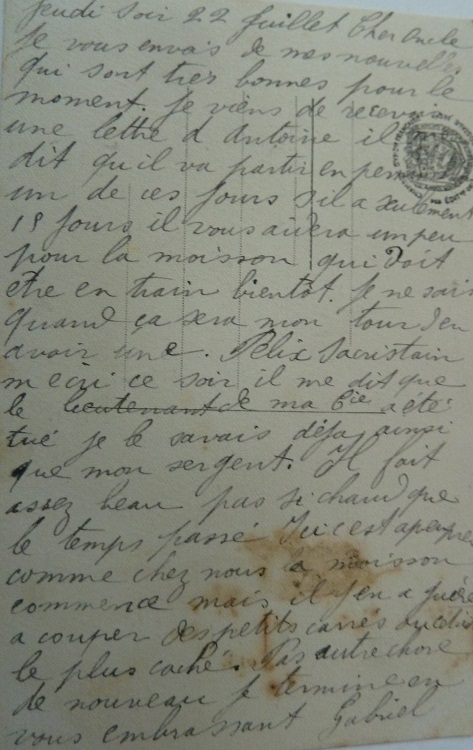 Jeudi soir 22 Juillet Cher oncle
Je vous envais de mes nouvelles
qui sont tres bonnes pour le
moment. Je viens de recevoir
une lettre d Antoine il
dit qu il va partir en perm
un de ces jours s il a seulement
15 jours il vous aidera un peu
pour la moisson qui doit
etre en train bientot. Je ne sais
quand ça sera mon tour d en
avoir une. Felix Sacristain
m ecri ce soir il me dit que
le lieutenant de ma Cie a été
tué je le savais déja ainsi
que mon sergent. Il fait
assez beau pas si chaud que
le temps passé Ici c est apeupres
comme chez nous la moisson
commence mais il y en a guère
a couper des petits carrés
le plus caché. Pas autre chose
de nouveau Je termine en
vous embrassant Gabriel